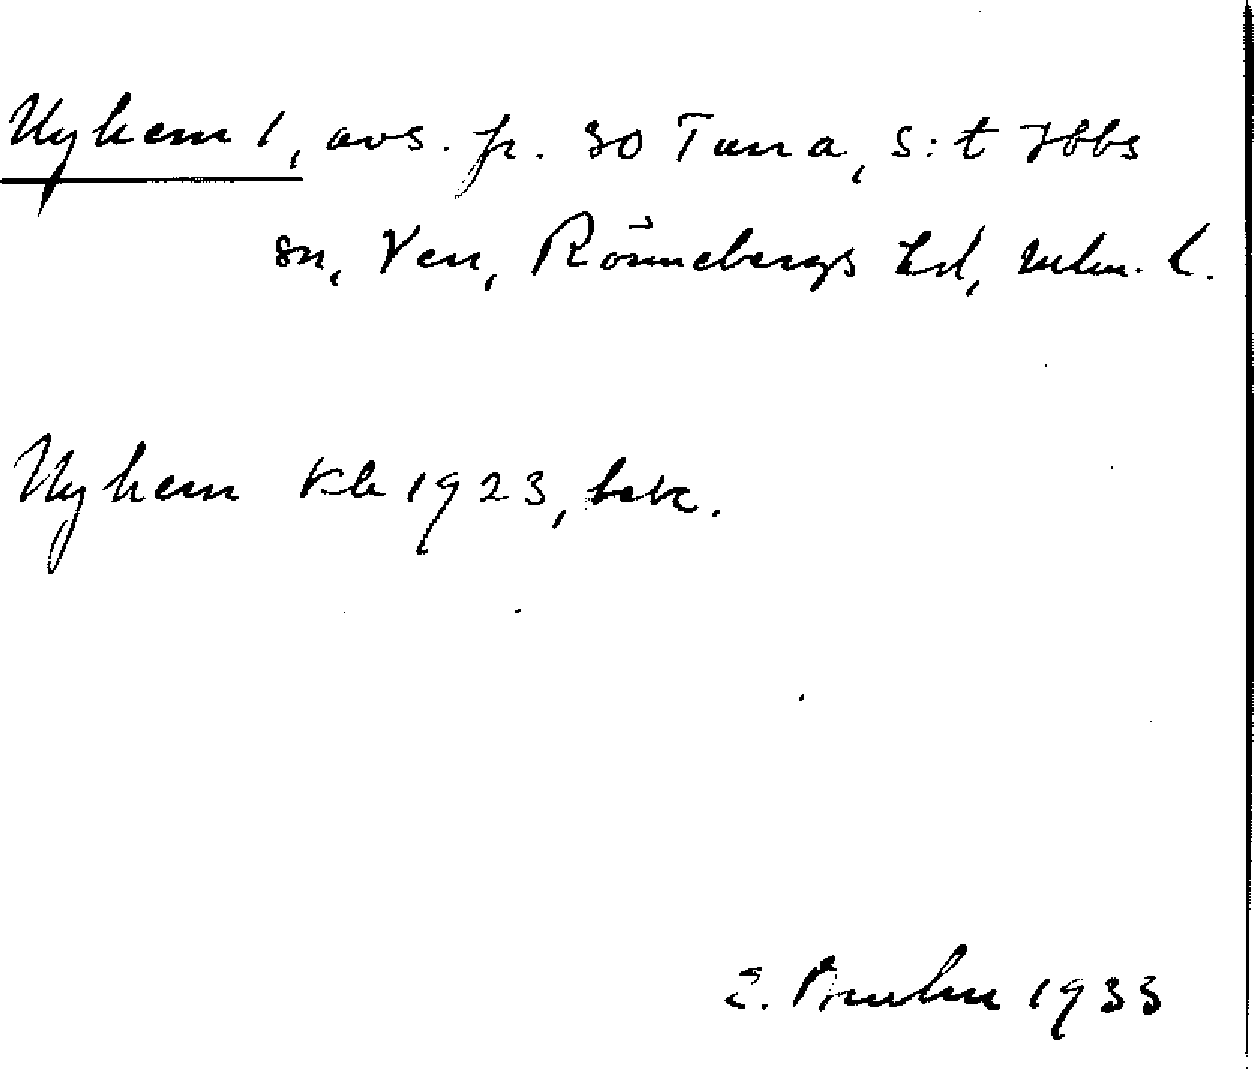 Nyhem 1, avs. fr. 30 Tuna, S:t Ibbs
sn, Ven, Rönnebergs hd, Mlm. l.
Nyhem Kb 1923, beb.
E. Bruhn 1933